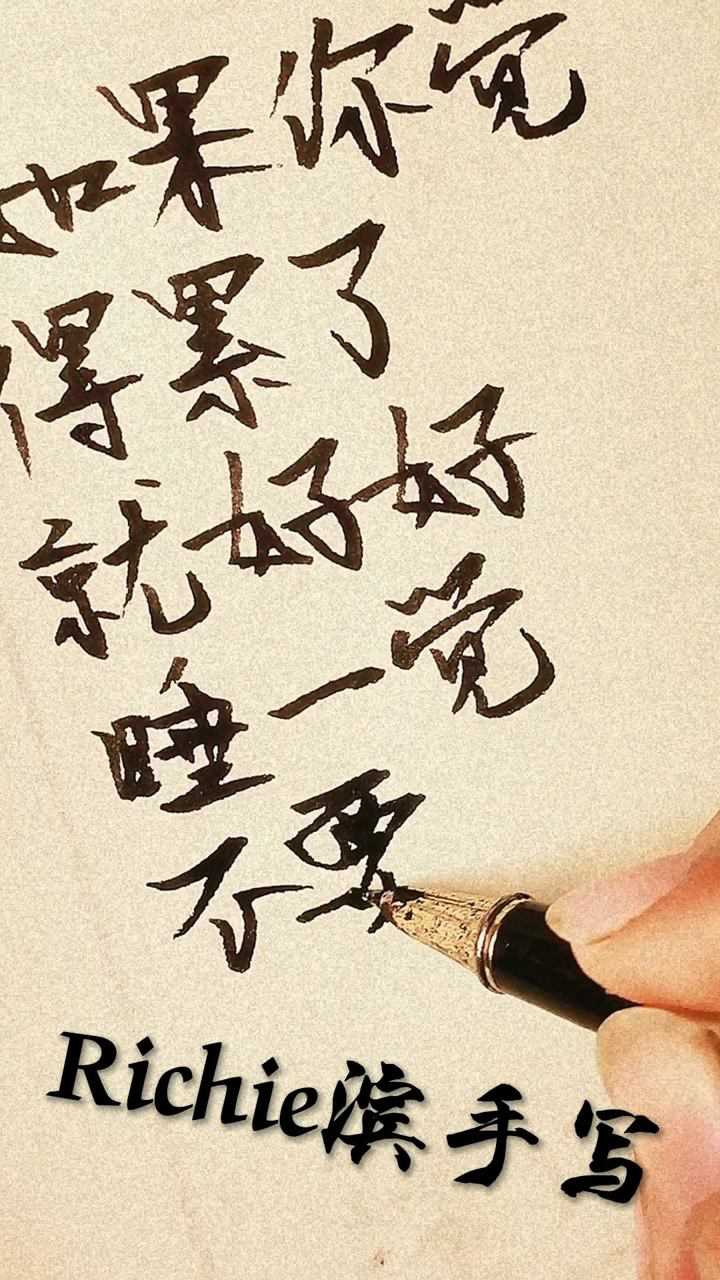 如果你觉
得累了
就好好
睡一觉
不要
Richie滨手写